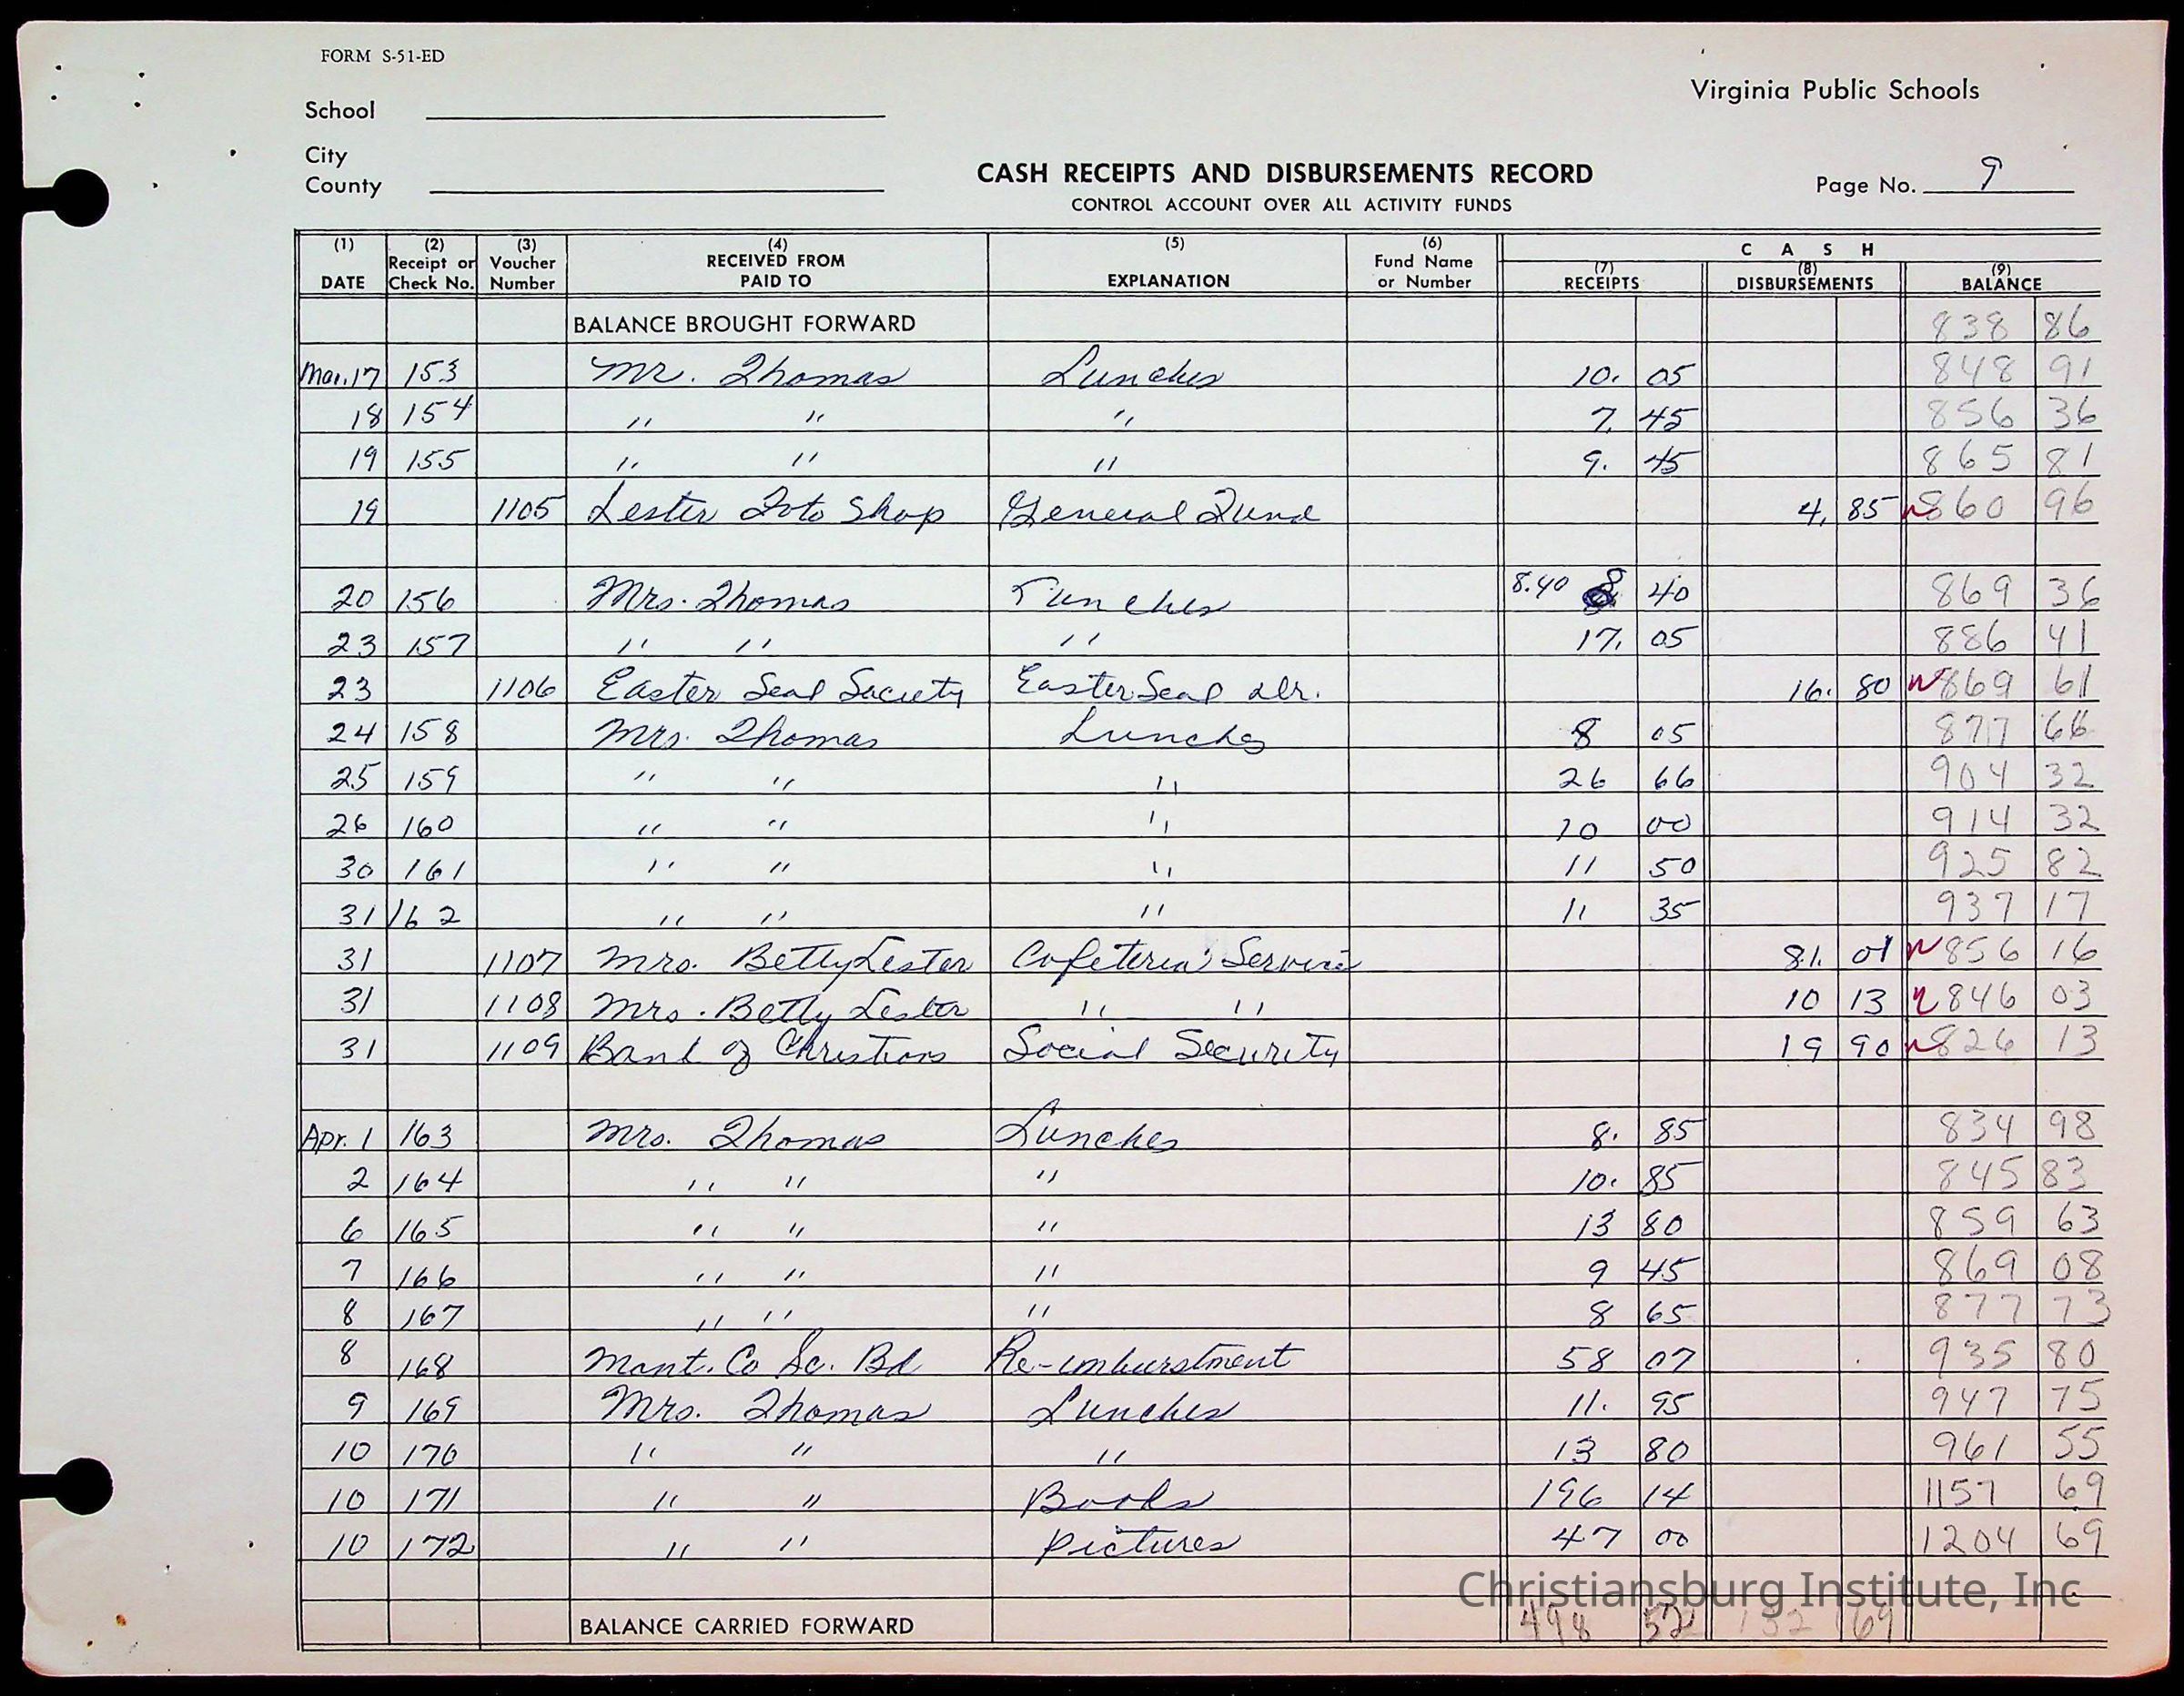 FORM S-51-ED
School
City
County
Virginia Public Schools
CASH RECEIPTS AND DISBURSEMENTS RECORD
CONTROL ACCOUNT OVER ALL ACTIVITY FUNDS
Page No. 9
(1) DATE (2) Receipt or Check No. (3) Voucher Number (4) RECEIVED FROM PAID TO (5) EXPLANATION (6) Fund Name or Number CASH (7) RECEIPTS (8) DISBURSEMENTS (9) BALANCE
BALANCE BROUGHT FORWARD 838 86
Mar. 17 153 Mr. Thomas Lunches 10. 05 848 91
18 154 " " " 7. 45 856 36
19 155 " " " 9. 45 865 81
19 1105 Lester Foto Shop General Fund 4. 85 860 96
20 156 Mrs. Thomas Lunches 8.40 8. 40 869 36
23 157 " " " 17. 05 886 41
23 1106 Easter Seal Society Easter Seal dr. 16. 80 869 61
24 158 Mrs. Thomas Lunches 8 05 877 66
25 159 " " " 26 66 904 32
26 160 " " " 10 00 914 32
30 161 " " " 11 50 925 82
31 162 " " " 11 35 937 17
31 1107 Mrs. Betty Lester Cafeteria Service 81. 01 856 16
31 1108 Mrs. Betty Lester " " 10 13 846 03
31 1109 Bank of Christians Social Security 19 90 826 13
Apr. 1 163 Mrs. Thomas Lunches 8. 85 834 98
2 164 " " " 10. 85 845 83
6 165 " " " 13 80 859 63
7 166 " " " 9 45 869 08
8 167 " " " 8 65 877 73
8 168 Mont. Co Sc. Bd Re-imburstment 58 07 935 80
9 169 Mrs. Thomas Lunches 11. 95 947 75
10 170 " " " 13 80 961 55
10 171 " " Books 196 14 1157 69
10 172 " " Pictures 47 00 1204 69
Christiansburg Institute, Inc
BALANCE CARRIED FORWARD 498 52 132 69